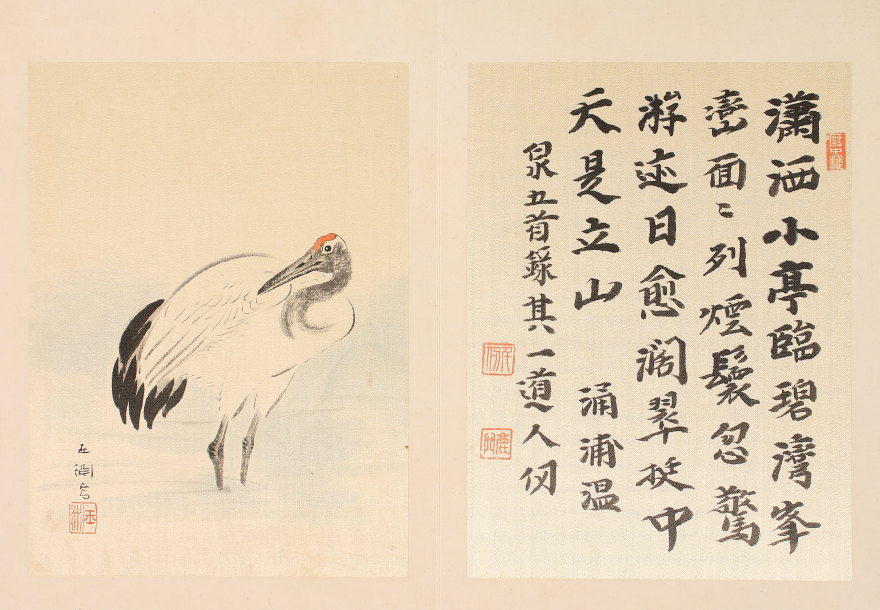 瀟洒小亭臨碧灣峯
巒面〻列煙鬟忽驚
游迹日愈濶翠挺中
天是立山 涌浦温
泉五首録其一道人
玉淵